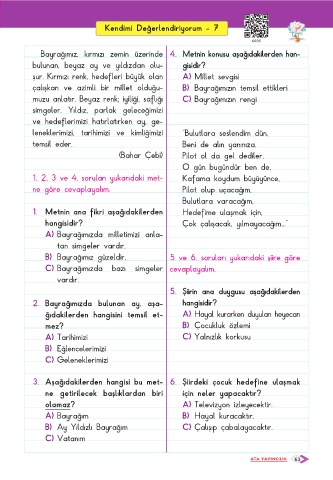 Kendimi Değerlendiriyorum - 7
Bayrağımız, kırmızı zemin üzerinde
bulunan, beyaz ay ve yıldızdan olu-
şur. Kırmızı renk, hedefleri büyük olan
çalışkan ve azimli bir millet olduğu-
muzu anlatır. Beyaz renk; iyiliği, saflığı
simgeler. Yıldız, parlak geleceğimizi
ve hedeflerimizi hatırlatırken ay, ge-
leneklerimizi, tarihimizi ve kimliğimizi
temsil eder.
(Bahar Çebi)
1, 2, 3 ve 4. soruları yukarıdaki met-
ne göre cevaplayalım.
1. Metnin ana fikri aşağıdakilerden
hangisidir?
A) Bayrağımızda milletimizi anla-
tan simgeler vardır.
B) Bayrağımız güzeldir.
C) Bayrağımızda bazı simgeler
vardır.
2. Bayrağımızda bulunan ay, aşa-
ğıdakilerden hangisini temsil et-
mez?
A) Tarihimizi
B) Eğlencelerimizi
C) Geleneklerimizi
3. Aşağıdakilerden hangisi bu met-
ne getirilecek başlıklardan biri
olamaz?
A) Bayrağım
B) Ay Yıldızlı Bayrağım
C) Vatanım
4. Metnin konusu aşağıdakilerden han-
gisidir?
A) Millet sevgisi
B) Bayrağımızın temsil ettikleri
C) Bayrağımızın rengi
"Bulutlara seslendim dün,
Beni de alın yanınıza,
Pilot ol da gel dediler.
O gün bugündür ben de,
Kafama koydum büyüyünce,
Pilot olup uçacağım,
Bulutlara varacağım,
Hedefime ulaşmak için,
Çok çalışacak, yılmayacağım..."
5 ve 6. soruları yukarıdaki şiire göre
cevaplayalım.
5. Şiirin ana duygusu aşağıdakilerden
hangisidir?
A) Hayal kurarken duyulan heyecan
B) Çocukluk özlemi
C) Yalnızlık korkusu
6. Şiirdeki çocuk hedefine ulaşmak
için neler yapacaktır?
A) Televizyon izleyecektir.
B) Hayal kuracaktır.
C) Çalışıp çabalayacaktır.
ATA YAYINCILIK
63